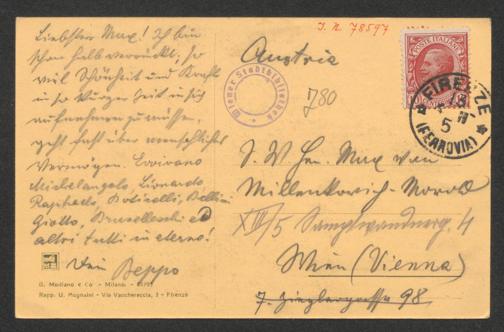 Liebster Max! Ich bin
schon halb verrückt; so
viel Schönheit und Kraft
in so kurzer Zeit in sich
aufnehmen zu müssen,
geht fast über menschliches
Vermögen. Evvivano
Michelangelo, Lionardo
Raphaelo, Boticelli, Bellini
Giotto, Brunelleschi ed
altri tutti in eterno!
Dein Beppo
G. Modiano e Co - Milano -
Rapp. U. Mognaini - Via Vacchereccia, 3 - Firenze
J. N. 78597
Austria
Wiener Stadtbibliothek
780
POSTE ITALIANE
FIRENZE
5
(FERROVIA)
Max von
Millenkovich-Morold
XIII/5 4
Wien (Vienna)
7. Zieglergasse 98.